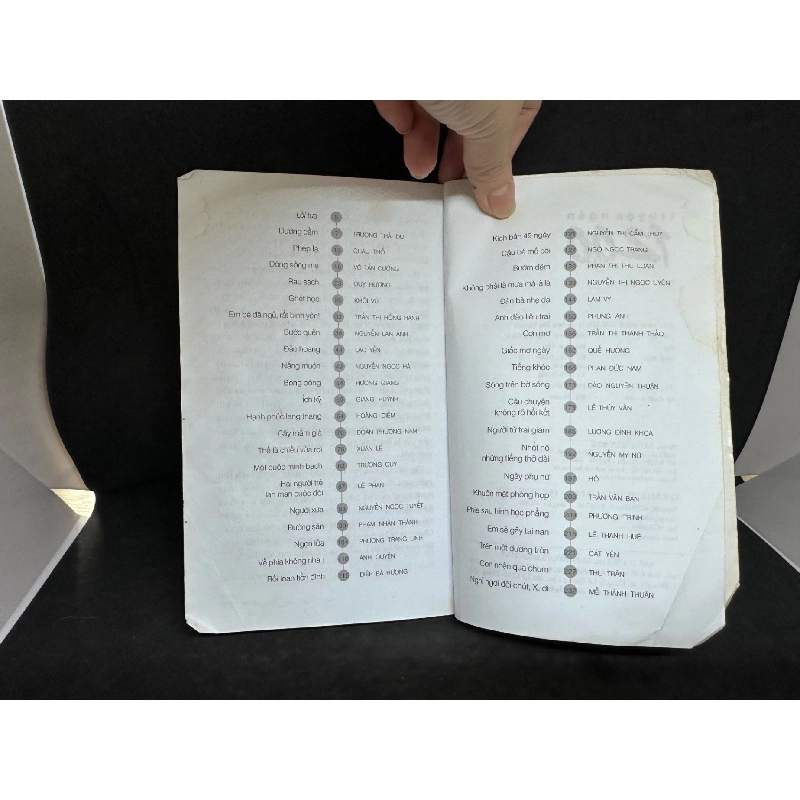 Lời tựa 5
Dương cầm 7 TRƯƠNG THÁI DU
Phép lạ 13 CHÂU THỔ
Dòng sông mẹ 18 VÕ TẤN CƯỜNG
Rau sạch 23 DUY HƯƠNG
Ghét học 28 KHÔI VŨ
Em bé đã ngủ, rất bình yên! 32 TRẦN THỊ HỒNG HẠNH
Guốc quên NGUYỄN LAN ANH
Đảo hoang LẠC YÊN
Nắng muộn NGUYỄN NGỌC HÀ
Bong bóng HƯƠNG GIANG
Ích kỷ GIANG HUỲNH
Hạnh phúc lang thang HOÀNG DIỄM
Cây mắm già ĐOÀN PHƯƠNG NAM
Thế là chiều vừa rơi XUÂN LÊ
Một cuộc minh bạch TRƯƠNG QUÝ
Hai người trẻ
lan man cuộc đời LÊ PHAN
Người xưa NGUYỄN NGỌC TUYẾT
Đường sắn PHẠM NHÂN THÀNH
Ngọn lửa PHƯƠNG TRANG LINH
Về phía không nhau ANH QUYÊN
Rối loạn tiền đình DIỆP BÁ HƯƠNG
truyện ngắn
Kịch bản 49 ngày 121 NGUYỄN THỊ CẨM THÚY
Cậu bé mồ côi 127 NGÔ NGỌC TRANG
Bướm đêm 133 PHAN THỊ THU LOAN
Không phải là mưa mà là lá 139 NGUYỄN THỊ NGỌC UYÊN
Đàn bà nhẹ dạ 144 LAM VY
Anh đào liêu trai 150 PHỤNG ANH
Cơn mơ 156 TRẦN THỊ THANH THẢO
Giấc mơ ngày 162 QUẾ HƯƠNG
Tiếng khóc 168 PHAN ĐỨC NAM
Sóng trên bờ sông 173 ĐÀO NGUYÊN THUẬN
Câu chuyện
không rõ hồi kết 179 LÊ THÚY VÂN
Người tử trại giam LƯƠNG ĐÌNH KHOA
Nhột nỗ
những tiếng thở dài 192 NGUYỄN MỸ NỮ
Ngày phụ nữ 197 HỒ
Khuôn mặt phòng họp 203 TRẦN VĂN BẠN
Phía sau hình học phẳng PHƯƠNG TRINH
Em sẽ gây tai nạn LÊ THANH HUỆ
Trên một đường tròn 221 CÁT YÊN
Con nhện qua chum 227 THU TRÂN
Nghỉ ngơi đôi chút, X. ơi 232 MỄ THÀNH THUẬN